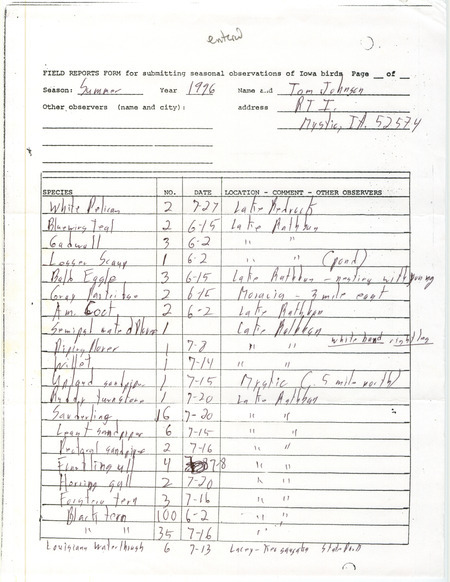 entered
FIELD REPORTS FORM for submitting seasonal observations of Iowa birds Page __ of __
Season: Summer Year 1996 Name and Tom Johnson
Other observers (name and city): address RT 1.
Mystic, IA. 52574
SPECIES NO. DATE LOCATION - COMMENT - OTHER OBSERVERS
White Pelican 2 7-27 Lake Redrock
Bluewing Teal 2 6-15 Lake Rathbun
Gadwall 3 6-2 " "
Lesser Scaup 1 6-2 " " (pond)
Bald Eagle 3 6-15 Lake Rathbun - nesting with young
Gray Partridge 2 6-15 Moravia - 3 mile east
Am. Coot 2 6-2 Lake Rathbun
Semipalmated Plover 1 Lake Rathbun
Piping Plover 1 7-8 " " white band right leg
Willet 1 7-14 " "
Upland sandpiper 1 7-15 Mystic (.5 mile north)
Ruddy turnstone 1 7-20 Lake Rathbun
Sanderling 16 7-20 " "
Least sandpiper 6 7-15 " "
Pectoral sandpiper 2 7-16 " "
Franklin gull 4 7-8 " "
Herring gull 2 7-20 " "
Forsters tern 3 7-16 " "
Black tern 100 6-2 " "
" " 35 7-16 " "
Louisiana Waterthrush 6 7-13 Lacey-Keosauqua State Park